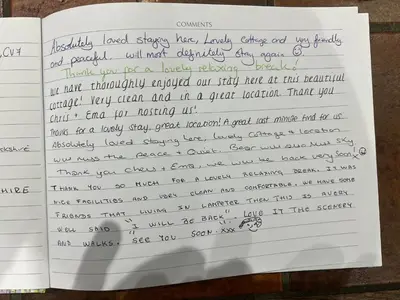 COMMENTS
CV7
Absolutely loved staying here, Lovely Cottage and very friendly
and peaceful. will most definitely stay again ☺.
Thank you for a lovely relaxing break!
We have thoroughly enjoyed our stay here at this beautiful
cottage! Very clean and in a great location. Thank you
Chris + Ema for hosting us!
Thanks for a lovely stay, great location! A great last minute find for us.
Absolutely loved staying here, lovely Cottage & location
will miss the Peace & Quiet. Bear will miss Sky
Thank you Chris + Ema, we will be back very soon! x
THANK YOU SO MUCH FOR A LOVELY RELAXING BREAK. IT WAS
NICE FACILITIES AND VERY CLEAN AND COMFORTABLE. WE HAVE SOME
FRIENDS THAT LIVING IN LAMPETER THEN THIS IS A VERY
WELL SAID "I WILL BE BACK". LOVE IT THE SCENERY
AND WALKS. SEE YOU SOON. XXX
HIRE